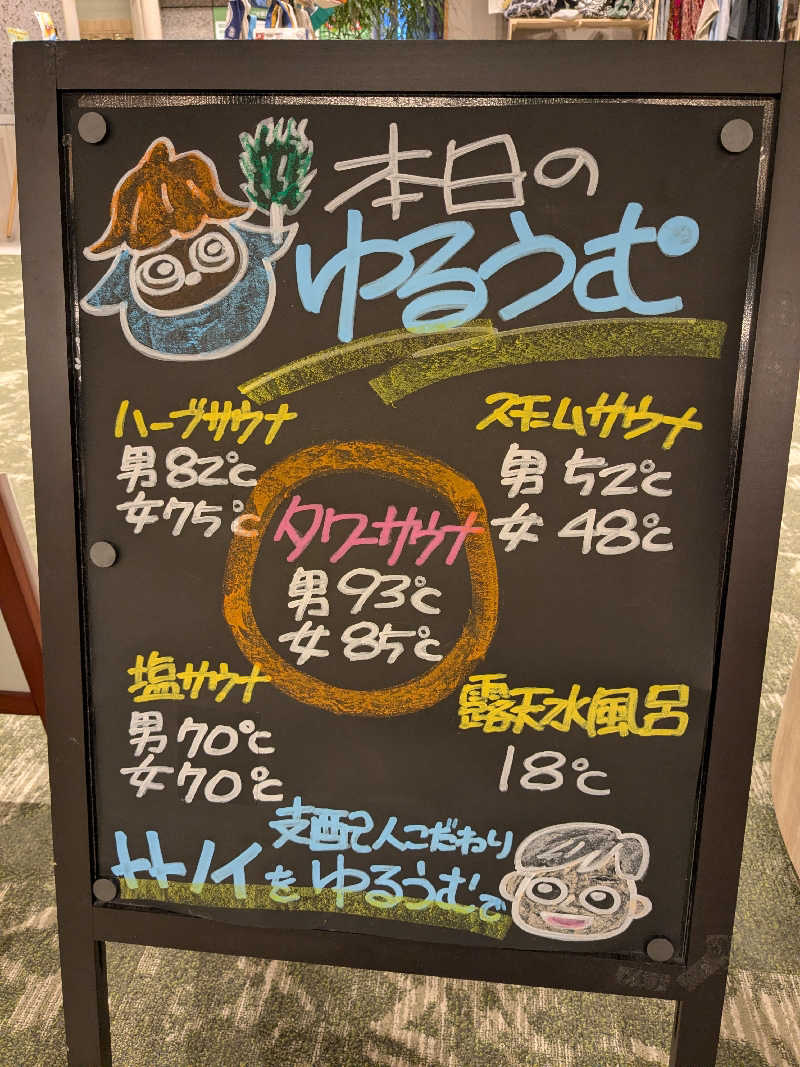 本日の
ゆるうむ
ハーブサウナ
男82℃
女75℃
スチームサウナ
男52℃
女48℃
タワーサウナ
男93℃
女85℃
塩サウナ
男70℃
女70℃
露天水風呂
18℃
支配人こだわり
サ ノイをゆるうむで